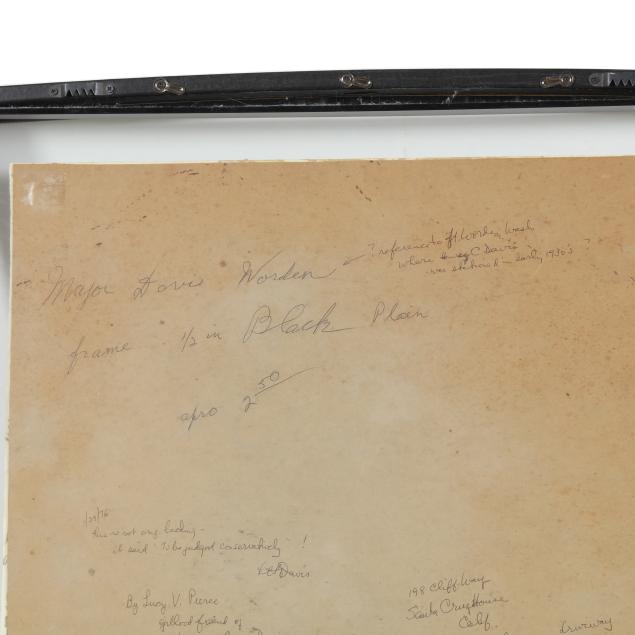 Major Davis Worden
? reference to Ft Worden, Wash
where C Davis
was stationed in early 1930's ?
frame 1/2 in Black Plain
apro 2 50
1/29/76
this is not orig. backing -
it said "To be judged conservatively" !
Davis
By Lucy V. Pierce
girlhood friend of
198 Cliff Way
Santa Cruz House
Calif.